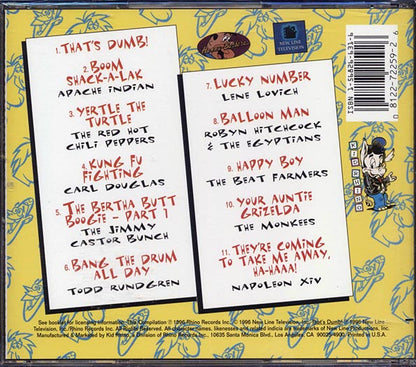 1. THAT'S DUMB!
2. BOOM
SHACK-A-LAK
APACHE INDIAN
3. YERTLE THE
TURTLE
THE RED HOT
CHILI PEPPERS
4. KUNG FU
FIGHTING
CARL DOUGLAS
5. THE BERTHA BUTT
BOOGIE - PART 1
THE JIMMY
CASTOR BUNCH
6. BANG THE DRUM
ALL DAY
TODD RUNDGREN
NEW LINE
TELEVISION
7. LUCKY NUMBER
LENE LOVICH
8. BALLOON MAN
ROBYN HITCHCOCK
& THE EGYPTIANS
9. HAPPY BOY
THE BEAT FARMERS
10. YOUR AUNTIE
GRIZELDA
THE MONKEES
11. THEY'RE COMING
TO TAKE ME AWAY,
HA-HAAA!
NAPOLEON XIV
ISBN 1-56826-631-6
0 8122-72259-2 6
KID RHINO
See booklet for licensing information. This Compilation ℗ 1996 Rhino Records Inc. © 1996 New Line Television, Inc. That's Dumb! © 1996 New Line
Television, Inc. Rhino Records Inc. All Rights Reserved. All characters, names, likenesses and related indicia are trademarks of New Line Productions, Inc.
Manufactured & Marketed by Kid Rhino, a Division of Rhino Records Inc. — 10635 Santa Monica Blvd., Los Angeles, CA 90025-4900. Printed in U.S.A.